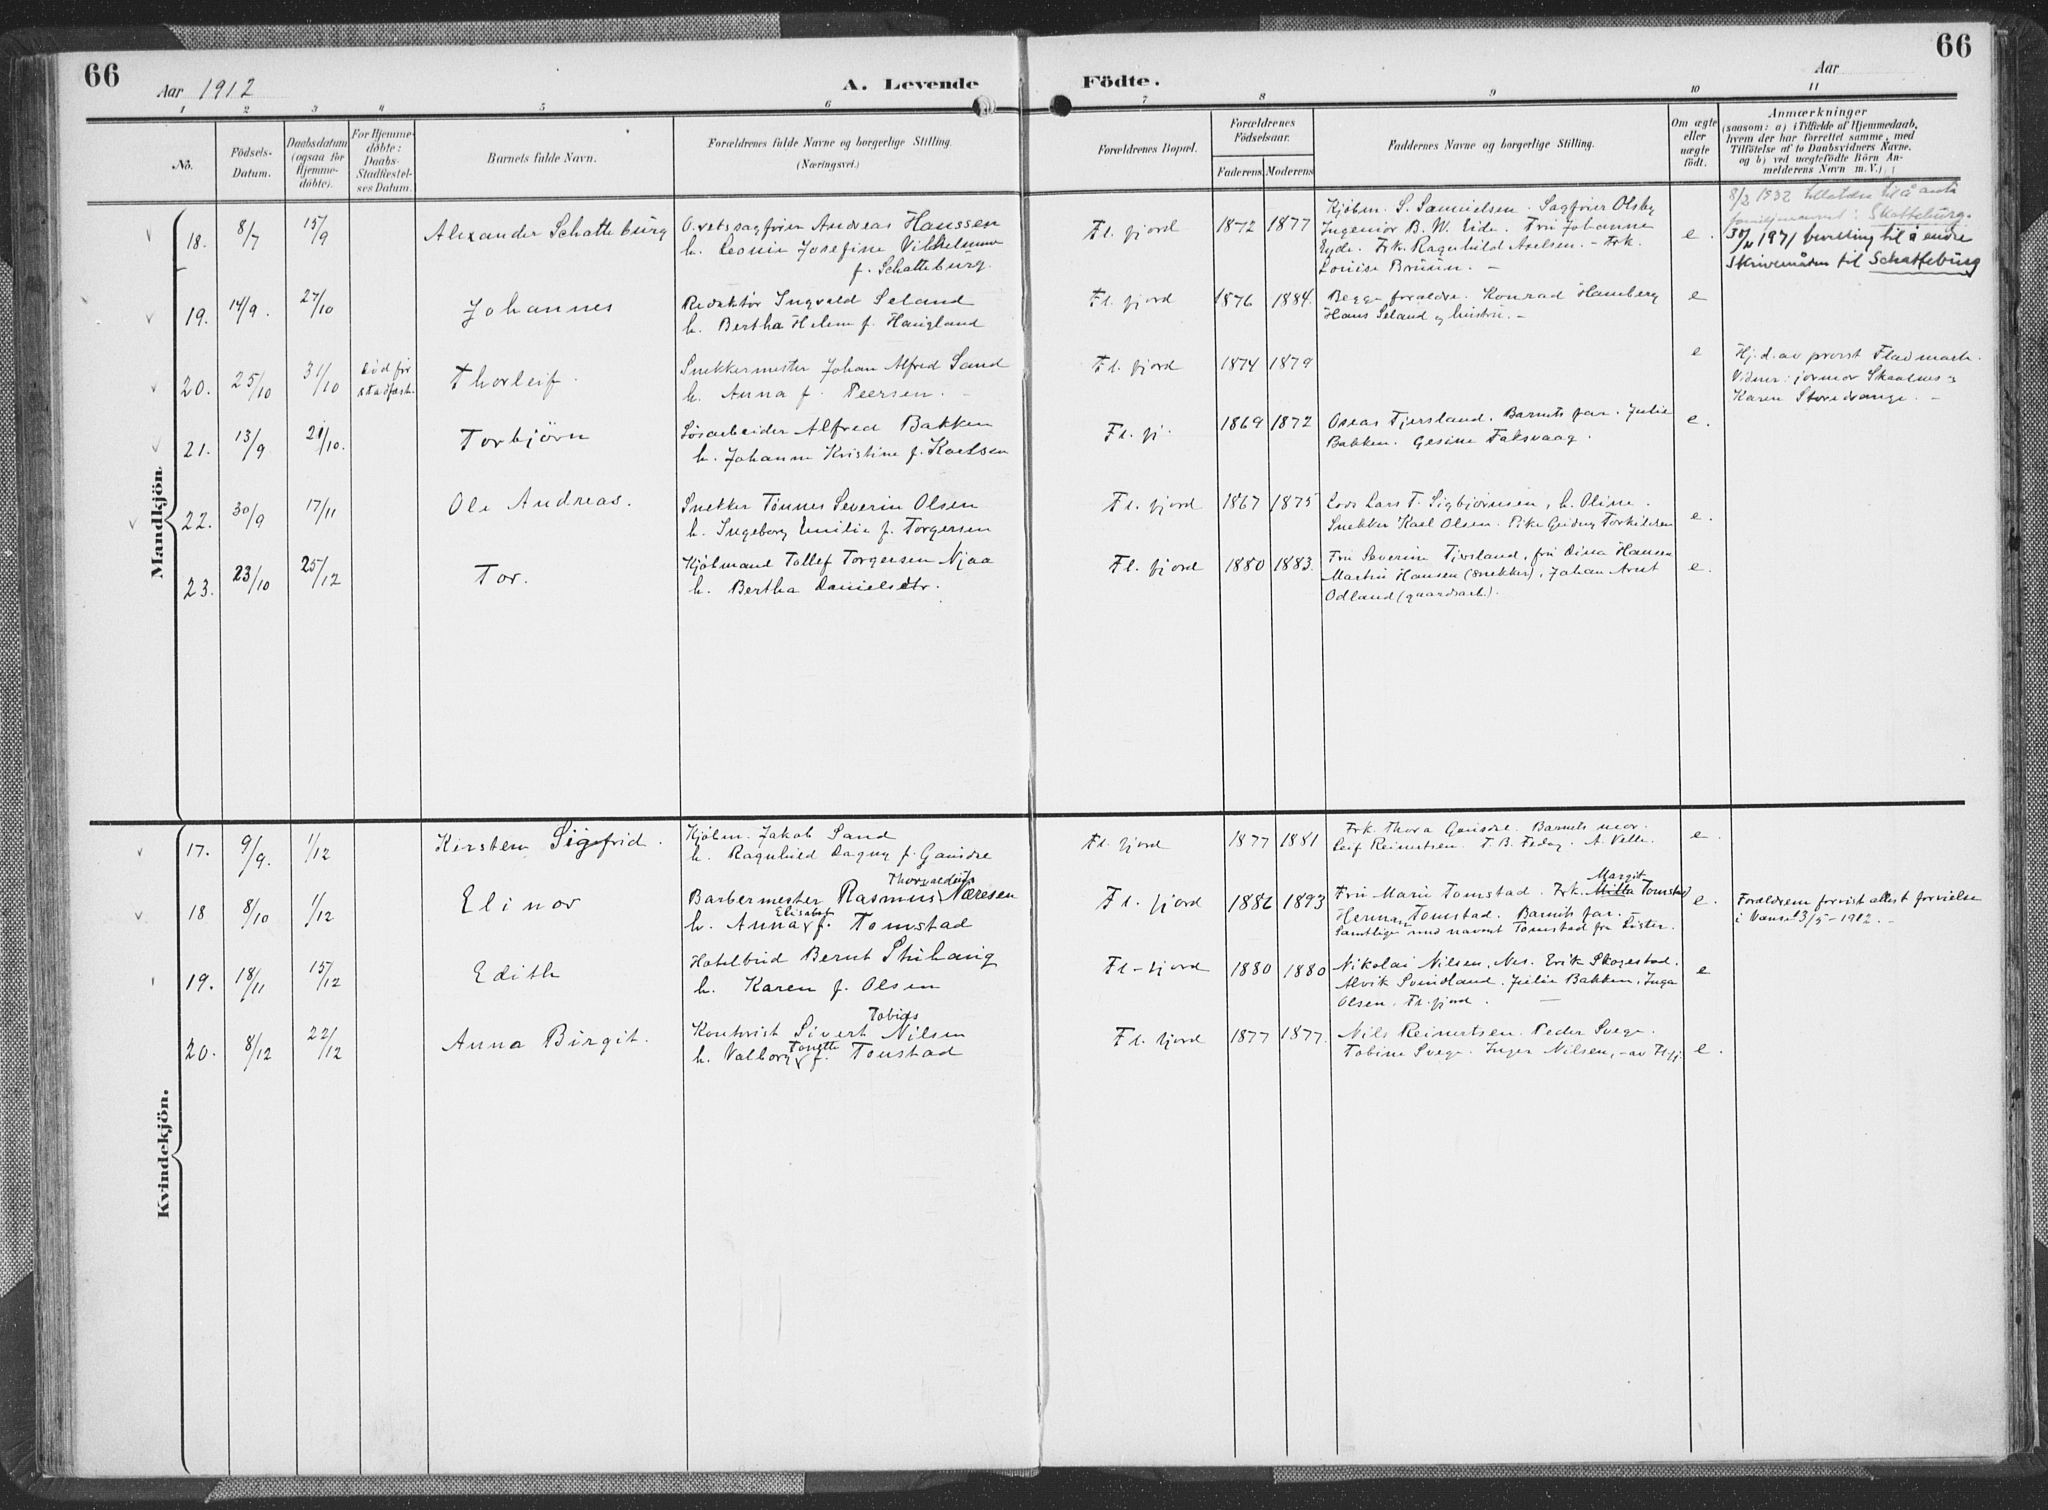 66
Aar 1912
A. Levende Födte.
Aar
66
1 2 3 4 5 6 7 8 9 10 11
No.
Födsels-
Datum.
Daabsdatum
(ogsaa for
Hjemme-
döbte).
For Hjemme-
döbte:
Daabs-
Stadfæstel-
ses Datum.
Barnets fulde Navn.
Forældrenes fulde Navne og borgerlige Stilling.
(Næringsvei.)
Forældrenes Bopæl.
Forældrenes
Födselsaar.
Faderens. Moderens.
Faddernes Navne og borgerlige Stilling.
Om ægte
eller
uægte
födt.
Anmærkninger
(saasom: a) i Tilfælde af Hjemmedaab,
hvem der har forrettet samme, med
Tilföielse af to Daabsvidners Navne.
og b) ved uægtefödte Börn An-
melderens Navn m. V.)
Mandkjön
18. 8/7 15/9 Alexander Schatteburg
O.retssagfører Andreas Hanssen
h. Leonie Josefine Vilhelmine
f. Schatteburg.
Fl. fjord 1872 1877
Kjøbm. S. Samuelsen. Sagfører Olsby
Ingeniør B. W. Eide. Fru Johanne
Eyde. Frk. Ragnhild Axelsen. - Frk.
Louise Bruun. -
e.
8/2 1932 tillatelse til å anta
familienavnet: Skatteburg.
1971 bevilling til å endre
skrivemåten til Schatteburg
19. 14/9. 27/10 Johannes
Redaktør Ingvald Seland
h. Bertha Helene f. Haugland
Fl. fjord 1876 1884.
Begge forældre. Konrad Hamberg
Hans Seland og hustru. -
e
20. 25/10 31/10 død før
stadfæst. Thorleif.
Snekkermester Johan Alfred Sand
h. Anna f. Peersen. -
Fl. fjord 1874 1879
e
Hj.d. av provst Fladmark.
Vidner: jormor Skaalnes og
Karen Storedvange. -
21. 13/9 21/10. Torbjörn
Alfred Bakken
h. Johanne Kristine f. Karlsen
Fl. fj. 1869 1872
Oscar Tjersland. Barnets far. Julie
Bakken. Gesine Faksvaag.
e.
22. 30/9 17/11 Ole Andreas.
Snekker Tønnes Severin Olsen
h. Ingeborg Emilie f. Torgersen
Fl. fjord 1867 1875
Lods Lars T. Sigbjørnsen, h. Oline.
Snekker Karl Olsen. Pike Torkildsen
e.
23. 23/10 25/12 Tor.
Kjøbmand Tollef Torgersen Njaa
h. Bertha Danielsdtr.
Fl. fjord 1880 1883.
Fru Severine Tjersland, fru Dina Hansen
Martin Hansen (snekker), Johan Aret
Odland (gaardsarb.).
e.
Kvindekjön.
17. 9/9. 1/12 Kirsten Sigfrid.
Kjøbm. Jakob Sand
h. Ragnhild Dagny f. Gausdre
Fl. fjord 1877 1881
Frk. Thora Gausdre. Barnets mor.
Leif Reinertsen. T. B. Fedog. A. Velle.
e.
18 8/10 1/12 Elinor
Thorvaldsen
Barbermester Rasmus Næresen
Elisabet
h. Anna f. Tomstad
Fl. fjord 1886 1893
Margit
Fru Marie Tomstad. Frk. Milla Tomstad
Herman Tomstad. Barnets far.
Samtlige med navnet Tomstad fra Lister.
e.
Forældrene forevist attest for vielse
i Vanse 3/5-1912. -
19. 18/11 15/12 Edith
Hotelbud Bernt Stuhaug
h. Karen f. Olsen
Fl. fjord 1880 1880
Nikolai Nilsen, Nes. Erik Skogestad.
Alvik Svindland. Julie Bakken. Inga
Olsen. Fl. fjord. -
e
20. 8/12 22/12 Anna Birgit.
Tobias
Kontorist Sivert Nilsen
Tonette
h. Valborg f. Tonstad
Fl. fjord 1877 1877.
Nils Reinertsen. Peder Svege.
Tobine Svege. Inger Nilsen, - av Flfj
e.